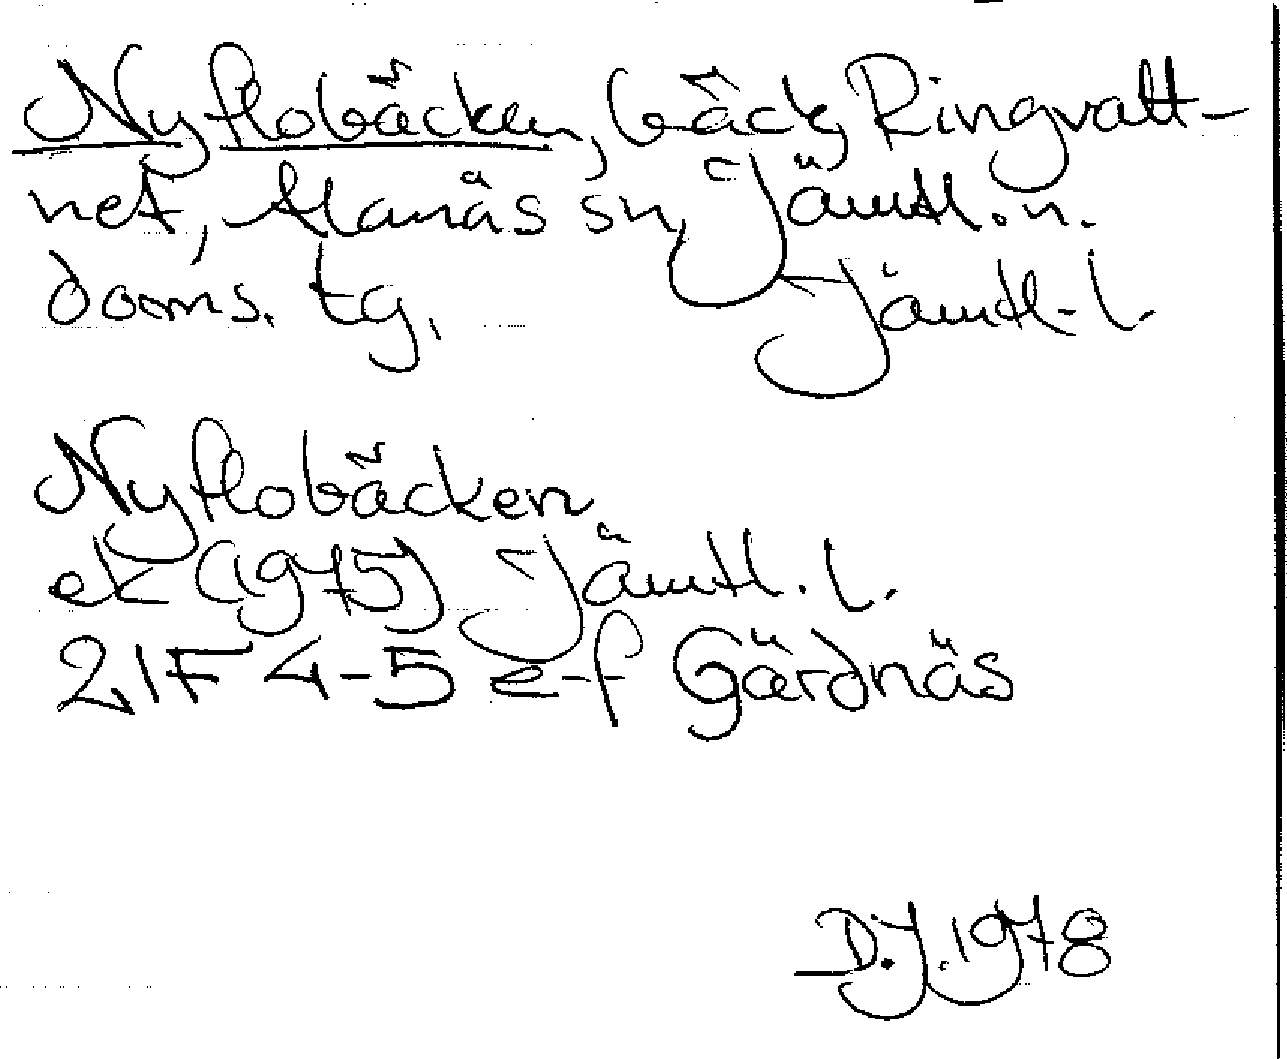 Nyflobäcken, bäck, Ringvatt-
net, Alanäs sn, Jämtl. n.
doms. tg, Jämtl. l.
Nyflobäcken
ek (1975) Jämtl. l.
21F 4-5 e-f Gärdnäs
D.J. 1978